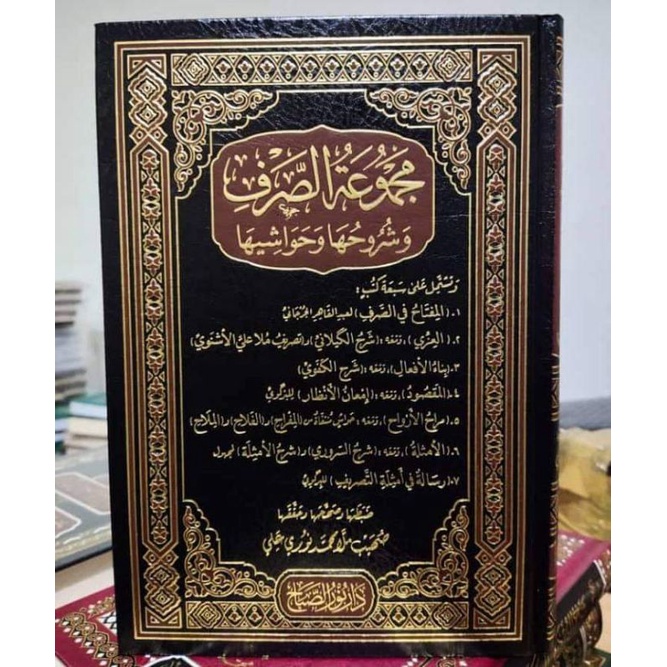 مَجْمُوعَةُ الصَّرْفِ
وَشُرُوحُهَا وَحَوَاشِيهَا
وتشتمل على سبعة كتب:
١. (المفتاح في الصرف) لعبد القاهر الجرجاني
٢. (العزي)، ومعه: (شرح الكيلاني) و(تصريف ملا علي الأشنوي)
٣. (بناء الأفعال)، ومعه: (شرح الكفوي)
٤. (المقصود)، ومعه: (إمعان الأنظار) للبركوي
٥. (مراح الأرواح)، ومعه: حواش منتقاة من (المفراح) و(الفلاح) و(الملاح)
٦. (الأمثلة)، ومعه: (شرح السروري) و(شرح الأمثلة) لمجهول
٧. (رسالة في أمثلة التصريف) للبركوي
ضبطها وصححها وحققها
صهيب ملا محمد نوري علي
دار نور الصباح